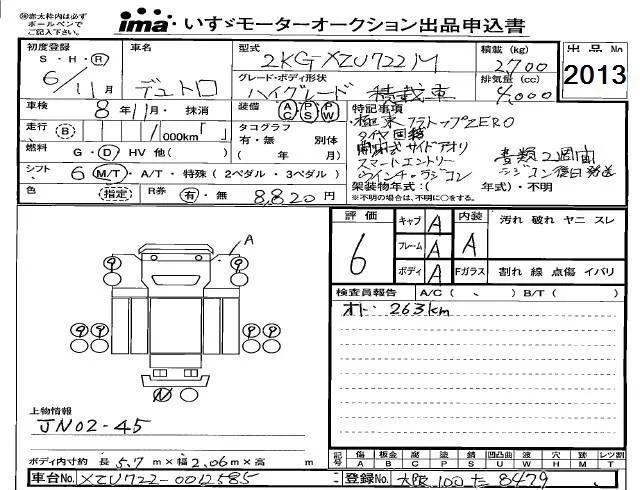 ㊟赤太枠内は必ず
ボールペンで
ご記入下さい。
ima® いすゞモーターオークション出品申込書
初度登録 車名 型式 2KG-XZU722M 積載 (kg) 2700 出品No
S・H・R 6/11月 デュトロ グレード・ボディ形状 ハイグレード 積載車 排気量 (cc) 4,000 2013
車検 8年11月・抹消 装備 AC PS PW 特記事項
極東 フラトップZERO
走行 (B) 1 /000km 「 」 タコグラフ 有・無 別体 ( 年 月)
タイヤ回転
燃料 G・D・HV 他( )
開閉式サイドアオリ
スマートエントリー 書類2週間
シフト 6 M/T・A/T・特殊 (2ペダル・3ペダル)
ウインチ・ラジコン ラジコン後日発送
色 (指定) R券 有・無 8,820円
架装物年式:( 年式)・不明
※不明の場合は、不明に○をする。
評価 キャブ A 内装 汚れ 破れ ヤニ スレ
6 フレーム A A
ボディ A Fガラス 割れ 線 点傷 イバリ
A
9 9
9 9 9 9
検査員報告 A/C ( 、 ) B/T ( )
オドー 263km
上物情報
JN02-45
ボディ内寸約 長 5.7 m×幅 2.06 m×高 m
記号 A B C G H K P S U W Y X M T
傷 板金 腐 点 交 欠 塗 錆 凹凸曲 波 穴 跡 レツ割
車台No. XZU722-0012585 登録No. 大阪 100 た 8479